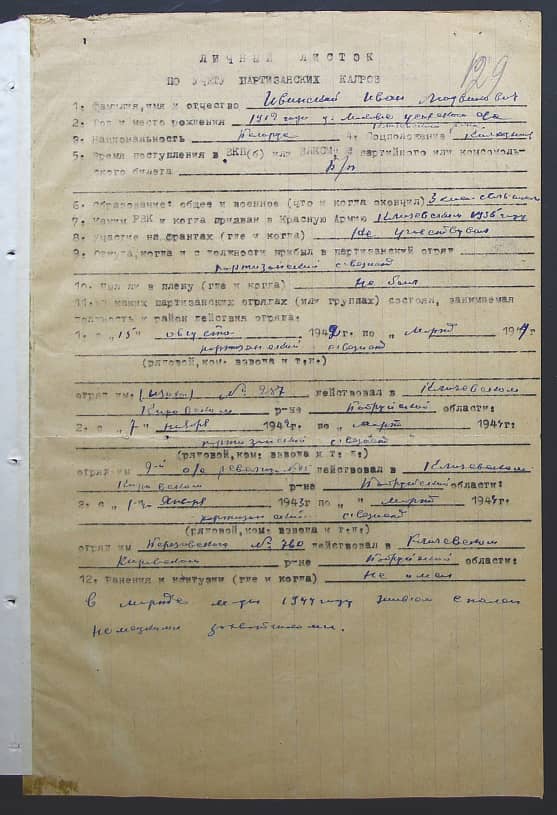 129
ЛИЧНЫЙ ЛИСТОК
ПО УЧЕТУ ПАРТИЗАНСКИХ КАДРОВ
1. Фамилия, имя и отчество Ивинский Иван Людвикович
2. Год и место рождения 1912 года
3. Национальность Беларус 4. Соцположение Колхозник
5. Время поступления в ВКП(б) или ВЛКСМ, № партийного или комсомоль-
ского билета б/п
6. Образование: общее и военное (что и когда окончил) 3 класс
7. Каким РВК и когда призван в Красную Армию Кличевским 1936 году
8. Участие на фронтах (где и когда) Не участвовал
9. Откуда, когда и с должности прибыл в партизанский отряд
партизанский связной
10. Был ли в плену (где и когда) не был
11. В каких партизанских отрядах (или группах) состоял, занимаемая
должность и район действия отряда:
1. с „15" августа 1942г. по „ март 1944
партизанский связной
(рядовой, ком. взвода и т.п.)
отряд им. № 287 действовал в Кличевском
Кировском р-не Бобруйской области:
2. с „7" января 1942г. по „ март 1944г:
партизанский связной
(рядовой, ком. взвода и т.п.)
отряд им действовал в Кличевском
Кировском р-не Бобруйской области:
3. с „ Января 1943г по „ " март 1944г:
партизанский связной
(рядовой, ком: взвода и т.п:)
отряд им Березовского № 760 действовал в Кличевском
Кировском р-не Бобруйской области:
12. Ранения и контузии (где и когда) Не имел
В марте 1944 году живом спален
немецкими захватчиками.